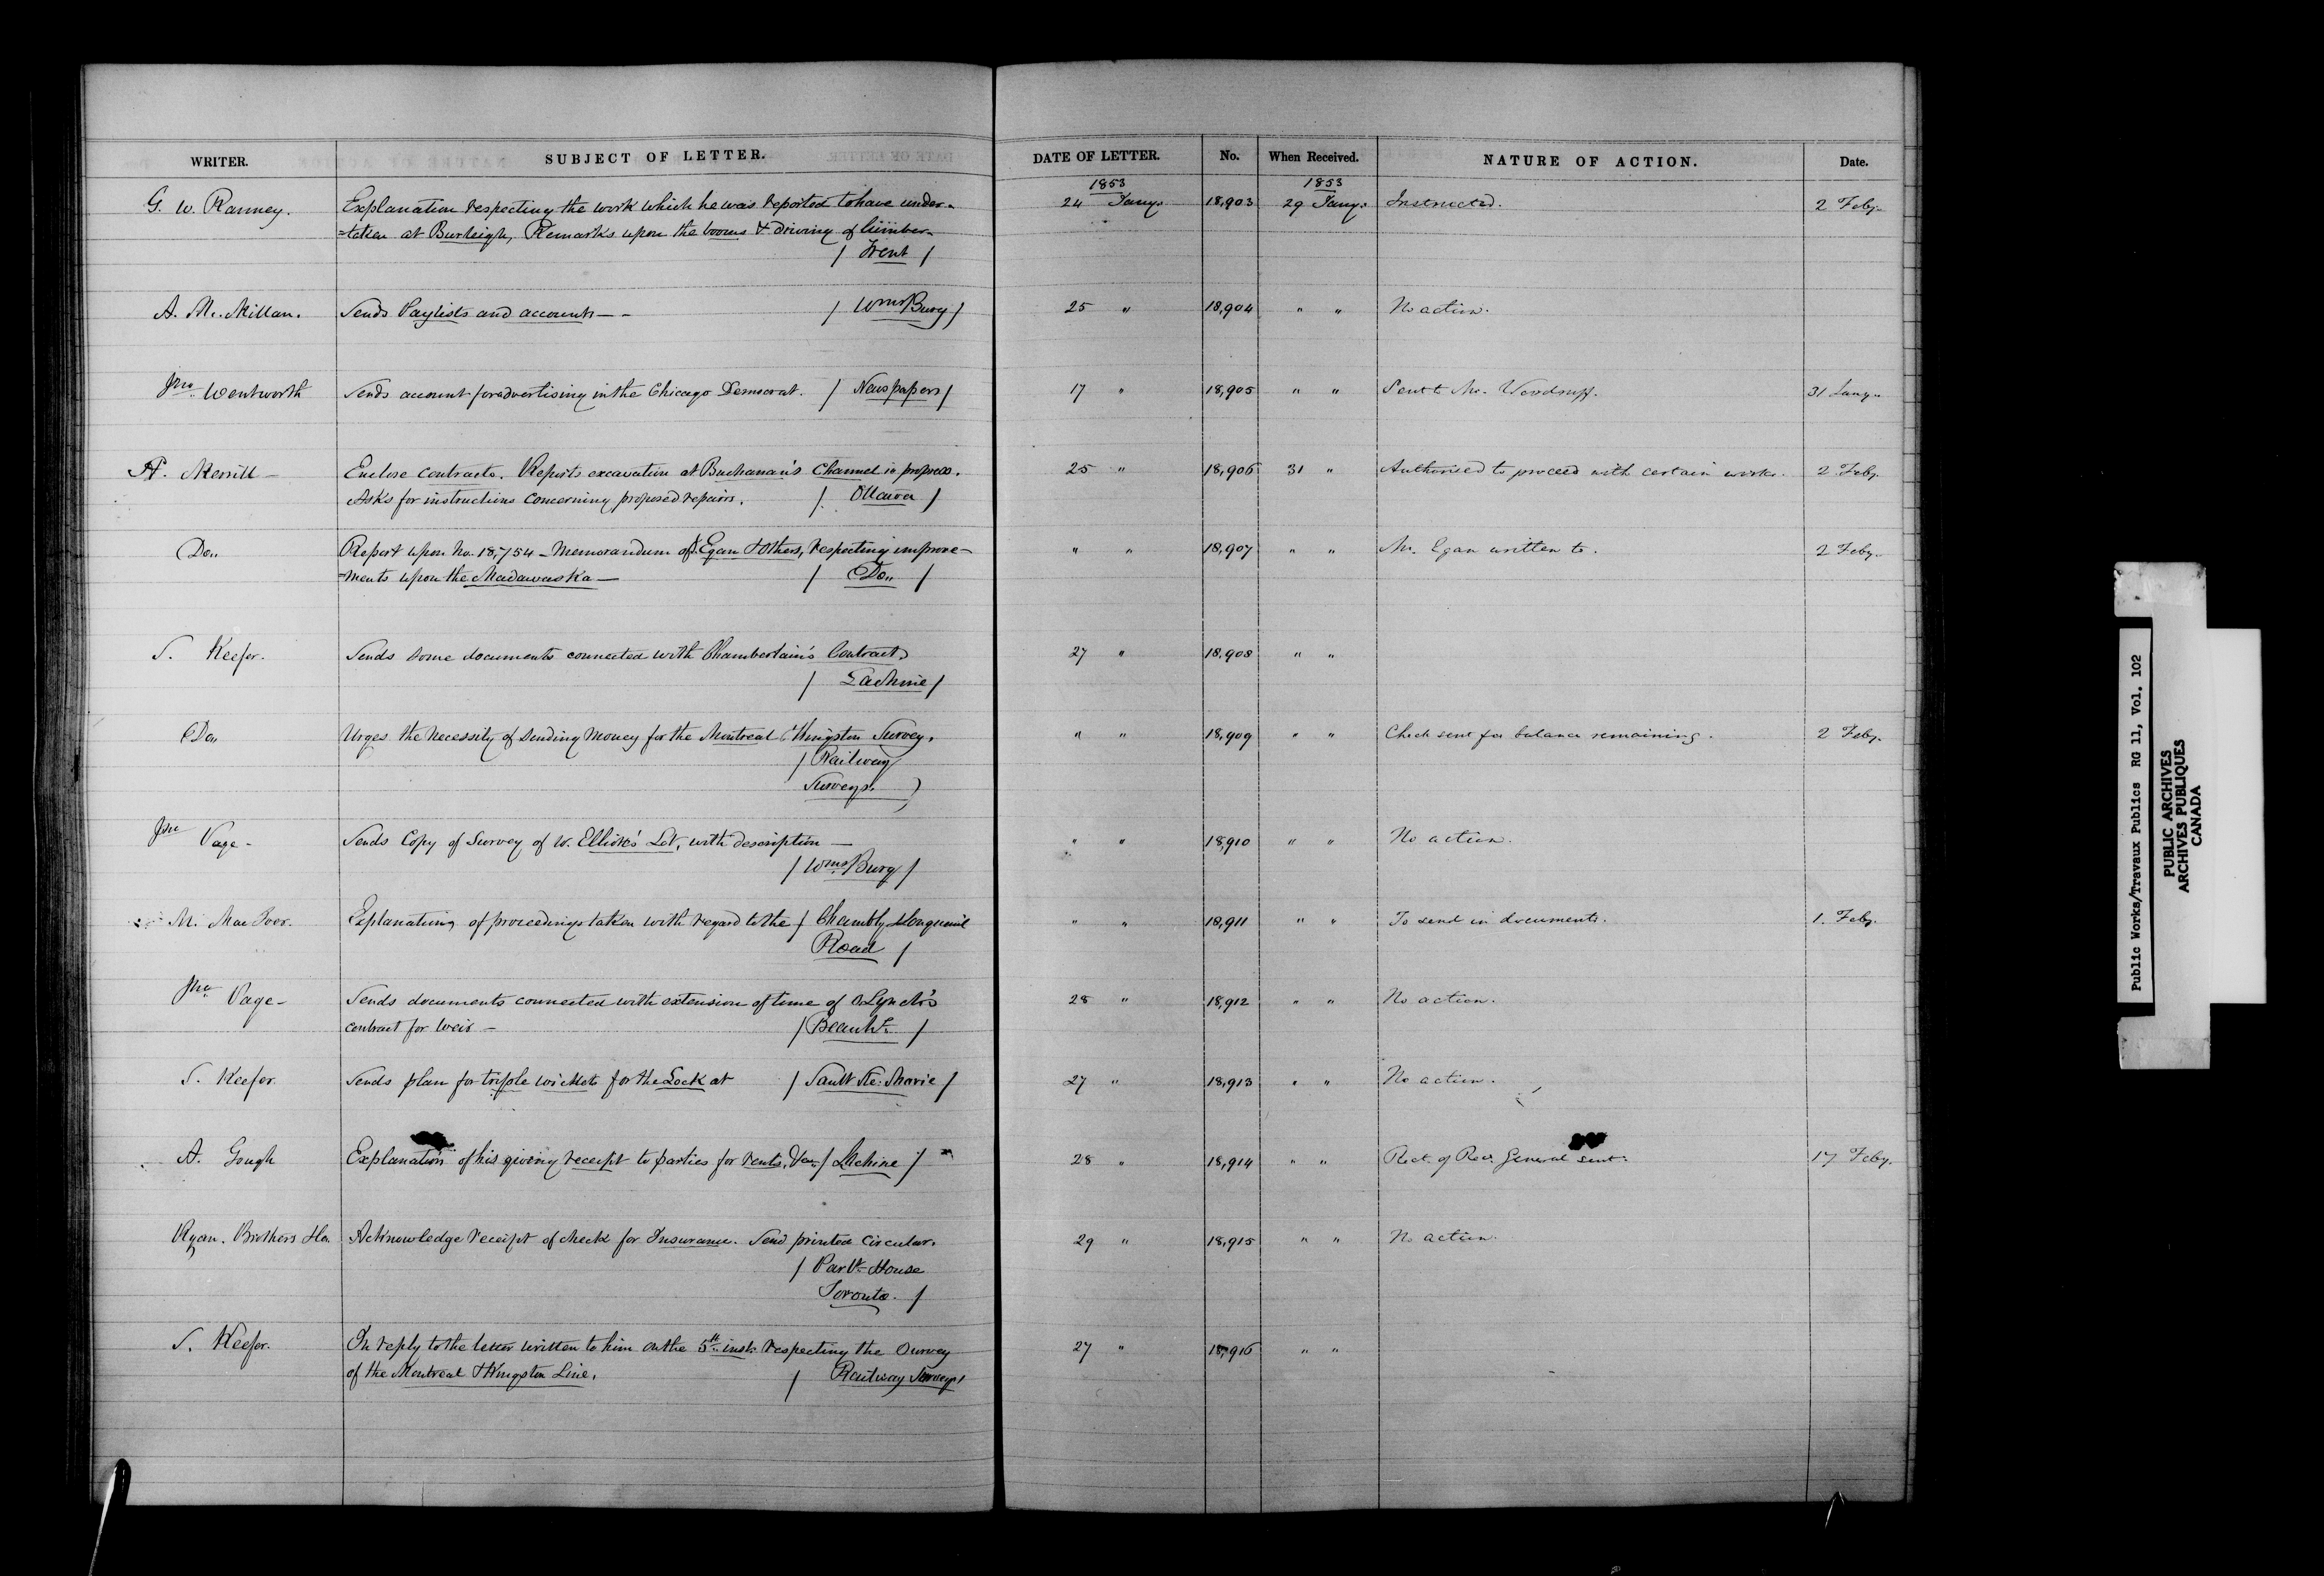 WRITER. SUBJECT OF LETTER. DATE OF LETTER. No. When Received. NATURE OF ACTION. Date.
1853 1853
G. W. Ranney. Explanation respecting the work which he was reported to have under= 24 Jany. 18,903 29 Jany. Instructed. 2 Feby.
=taken at Burleigh, Remarks upon the booms & driving of timber.
/ Trent /
A. Mc.Millan. Sends Paylists and accounts — / Wms Burg / 25 " 18,904 " " No action.
Jno. Wentworth Sends account for advertising in the Chicago Democrat. / Newspapers / 17 " 18,905 " " Sent to Mr. Woodruff. 31 Jany.
H. Merrill — Enclose Contracts. Reports excavation at Buchanan's Channel in progress. 25 " 18,906 31 " Authorised to proceed with certain works. 2 Feby.
Asks for instructions concerning proposed repairs. / Ottawa /
Do.. Report upon No. 18,754 — Memorandum of J. Egan & Others, respecting improve= " " 18,907 " " Mr. Egan written to. 2 Feby.
=ments upon the Madawaska — / Do.. /
S. Keefer. Sends some documents connected with Chamberlain's Contract 27 " 18,908 " "
/ Lachine /
Do.. Urges the necessity of sending Money for the Montreal & Kingston Survey. " " 18,909 " " Check sent for balance remaining. 2 Feby.
/ Railway
Surveys. )
Jno Page — Sends Copy of Survey of W. Elliott's Lot, with description — " " 18,910 " " No action.
/ Wms Burg /
M. MacIvor. Explanations of proceedings taken with regard to the / Chambly & Longueuil " " 18,911 " " To send in documents. 1. Feby.
Road /
Jno. Page — Sends documents connected with extension of time of Lynch's 28 " 18,912 " " No action.
contract for Weir — / Beauhs. /
S. Keefer. Sends plan for triple wickets for the Lock at / Sault Ste. Marie / 27 " 18,913 " " No action.
A. Gough Explanation of his giving receipt to parties for rents, &a. / Lachine / 28 " 18,914 " " Rect. of Recr. General sent. 17 Feby.
Ryan. Brothers & Co. Acknowledge receipt of check for Insurance. Send printed Circular. 29 " 18,915 " " No action.
/ Parlt. House
Toronto. /
S. Keefer. In reply to the letter written to him on the 5th inst. respecting the Survey 27 " 18,916 " "
of the Montreal & Kingston Line. / Railway Surveys /
Public Works/Travaux Publics RG 11, Vol. 102
PUBLIC ARCHIVES
ARCHIVES PUBLIQUES
CANADA